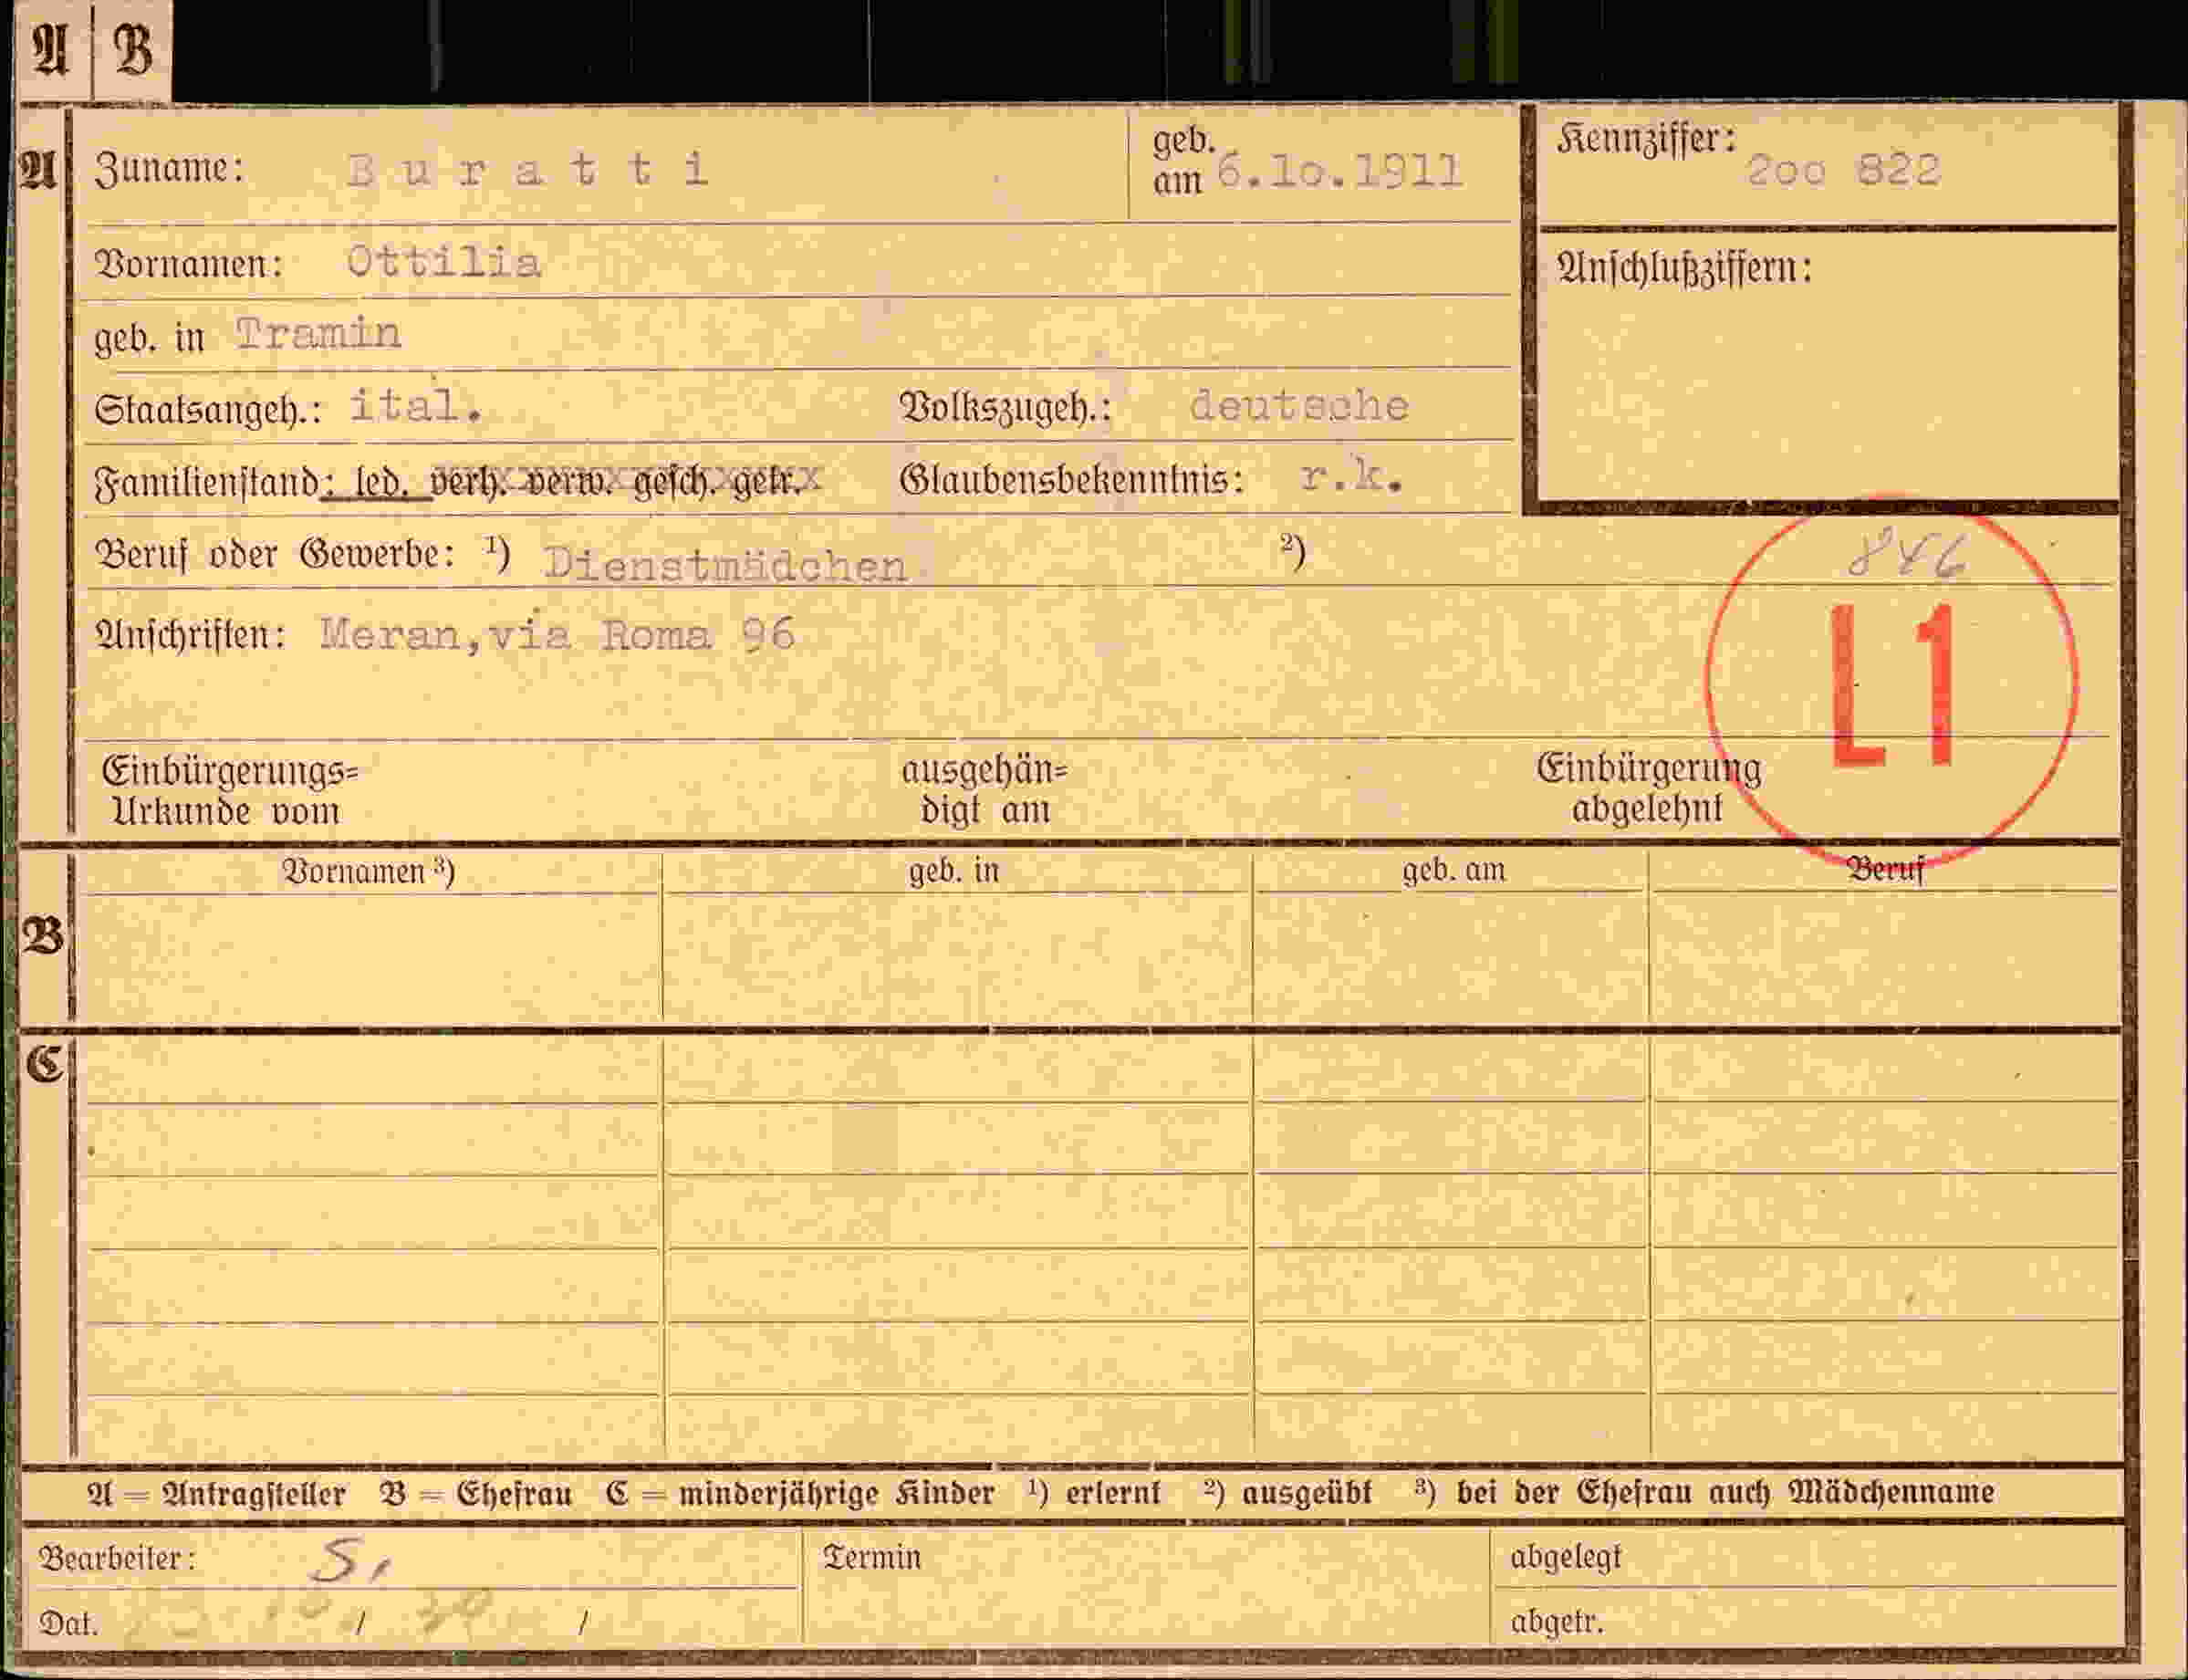 A B
A Zuname: Buratti geb. am 6.10.1911 Kennziffer: 200 822
Vornamen: Ottilia Anschlußziffern:
geb. in Tramin
Staatsangeh.: ital. Volkszugeh.: deutsche
Familienstand: led. verh. verw. gesch. getr. Glaubensbekenntnis: r.k.
Beruf oder Gewerbe: ¹) Dienstmädchen ²) 846
Anschriften: Meran, via Roma 96
L1
Einbürgerungs= ausgehän= Einbürgerung
Urkunde vom digt am abgelehnt
Vornamen ³) geb. in geb. am Beruf
B
C
A = Antragsteller B = Ehefrau C = minderjährige Kinder ¹) erlernt ²) ausgeübt ³) bei der Ehefrau auch Mädchenname
Bearbeiter: S. Termin abgelegt
Dat. / / abgetr.